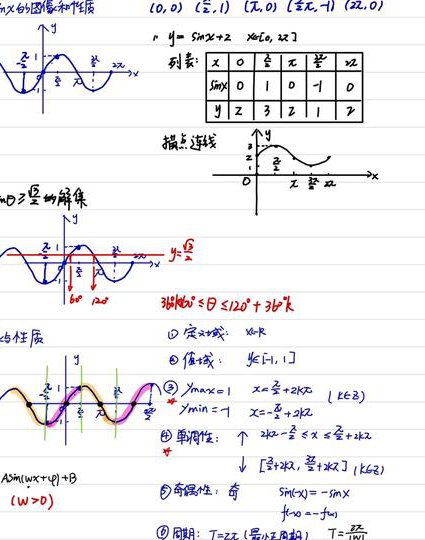 nx的图像和性质
(0,0) (π/2,1) (π,0) (3/2π,-1) (2π,0)
1. y= sinx+2 x∈[0,2π]
列表:
x 0 π/2 π 3π/2 2π
sinx 0 1 0 -1 0
y 2 3 2 1 2
描点连线
y
3
2
1
0 π/2 π 3π/2 2π x
nθ≥√3/2的解集
y=√3/2
60° 120°
≤θ≤120°+360°k
与性质
① 定义域: x∈R
② 值域: y∈[-1,1]
③ ymax=1 x=π/2+2kπ (k∈Z)
ymin=-1 x=-π/2+2kπ
④ 单调性: ↑ 2kπ-π/2≤x≤π/2+2kπ
↓ [π/2+2kπ, 3π/2+2kπ] (k∈Z)
Asin(wx+φ)+B
(w>0)
⑤ 奇偶性: 奇 sin(-x)=-sinx
f(-x)=-f(x)
⑥ 周期: T=2π (最小正周期) T=2π/|w|